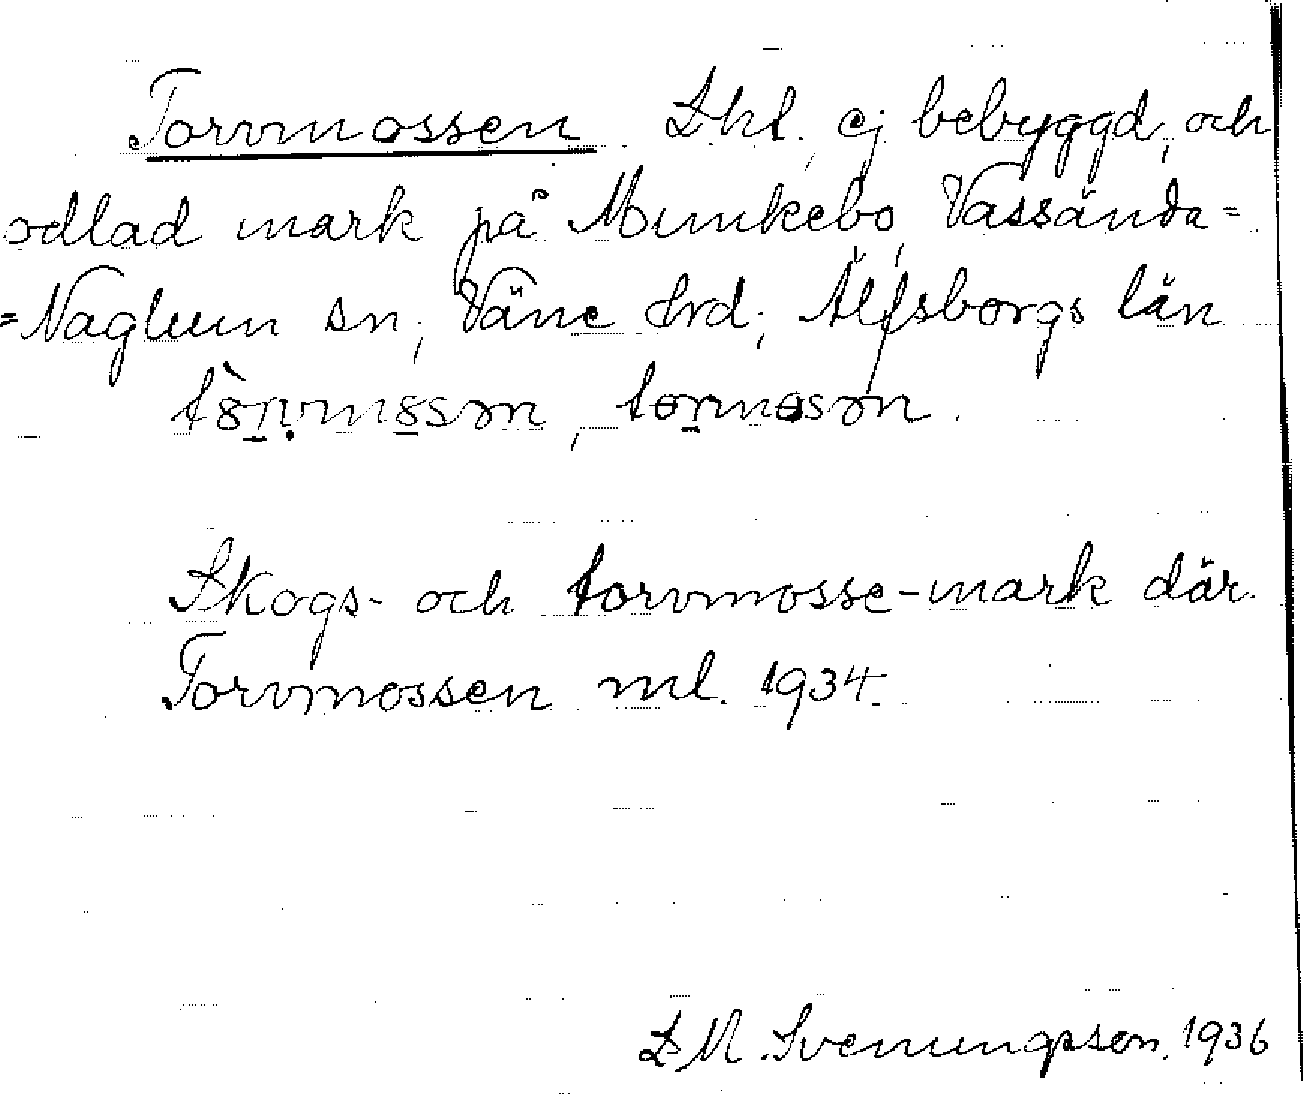 Torvmossen Lhl. ej bebyggd, och
odlad mark på Munkebo, Vassända=
=Naglum sn, Väne Hrd, Älfsborgs län
Skogs- och torvmosse-mark där.
Torvmossen ml. 1934.
L.M. Svenungsson. 1936